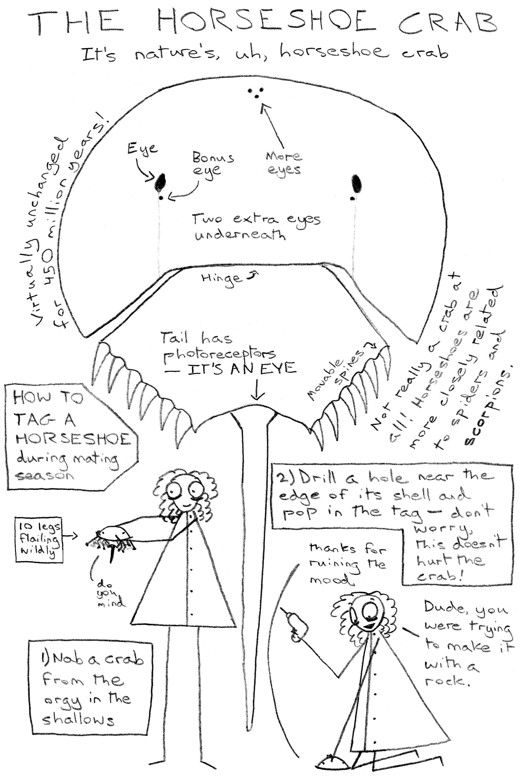 THE HORSESHOE CRAB
It's nature's, uh, horseshoe crab
Virtually unchanged
for 450 million years!
Eye
Bonus
eye
More
eyes
Two extra eyes
underneath
Hinge
Tail has
photoreceptors
— IT'S AN EYE
Movable spikes
Not really a crab at
all! Horseshoes are
more closely related
to spiders and
scorpions.
HOW TO
TAG A
HORSESHOE
during mating
season
10 legs
flailing
wildly
do
you
mind
1) Nab a crab
from the
orgy in the
shallows
2) Drill a hole near the
edge of its shell and
pop in the tag — don't
worry,
this doesn't
hurt the
crab!
thanks for
ruining the
mood
Dude, you
were trying
to make it
with a
rock.